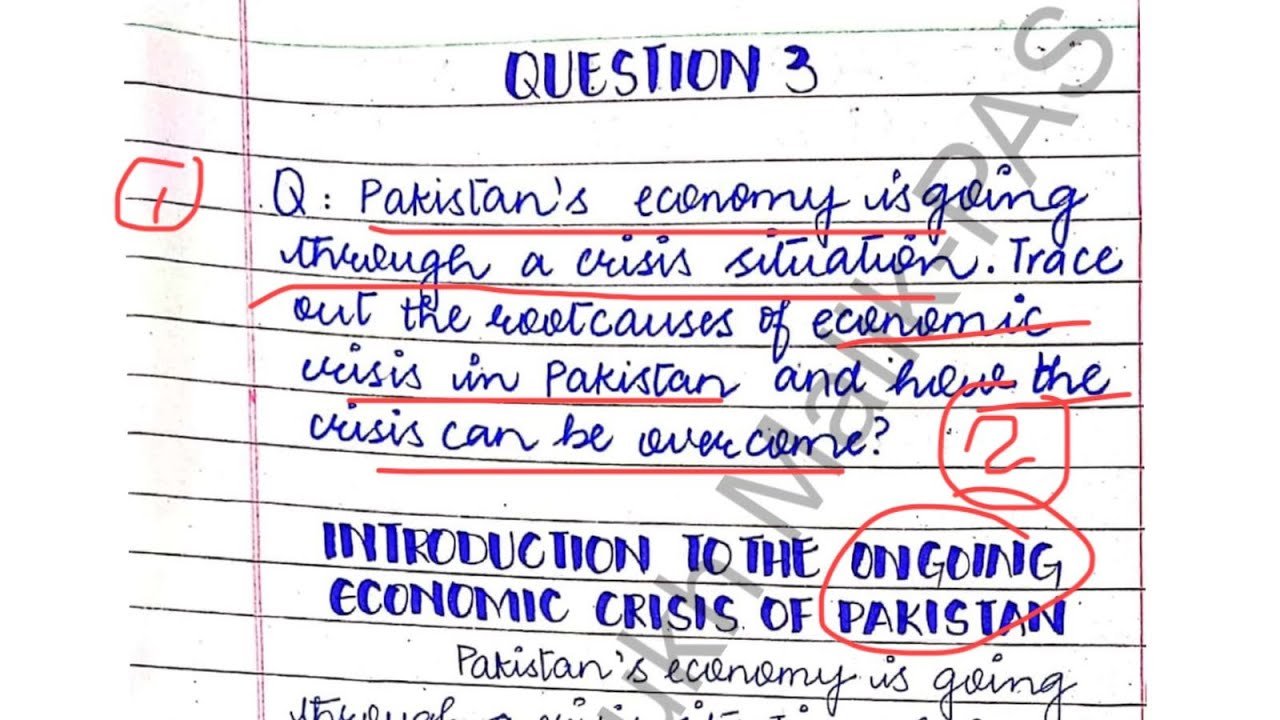 QUESTION 3
1
Q: Pakistan's economy is going
through a crisis situation. Trace
out the rootcauses of economic
crisis in Pakistan and how the
crisis can be overcome?
2
INTRODUCTION TO THE ONGOING
ECONOMIC CRISIS OF PAKISTAN
Pakistan's economy is going
through a crisis
ukh Malik-PAS